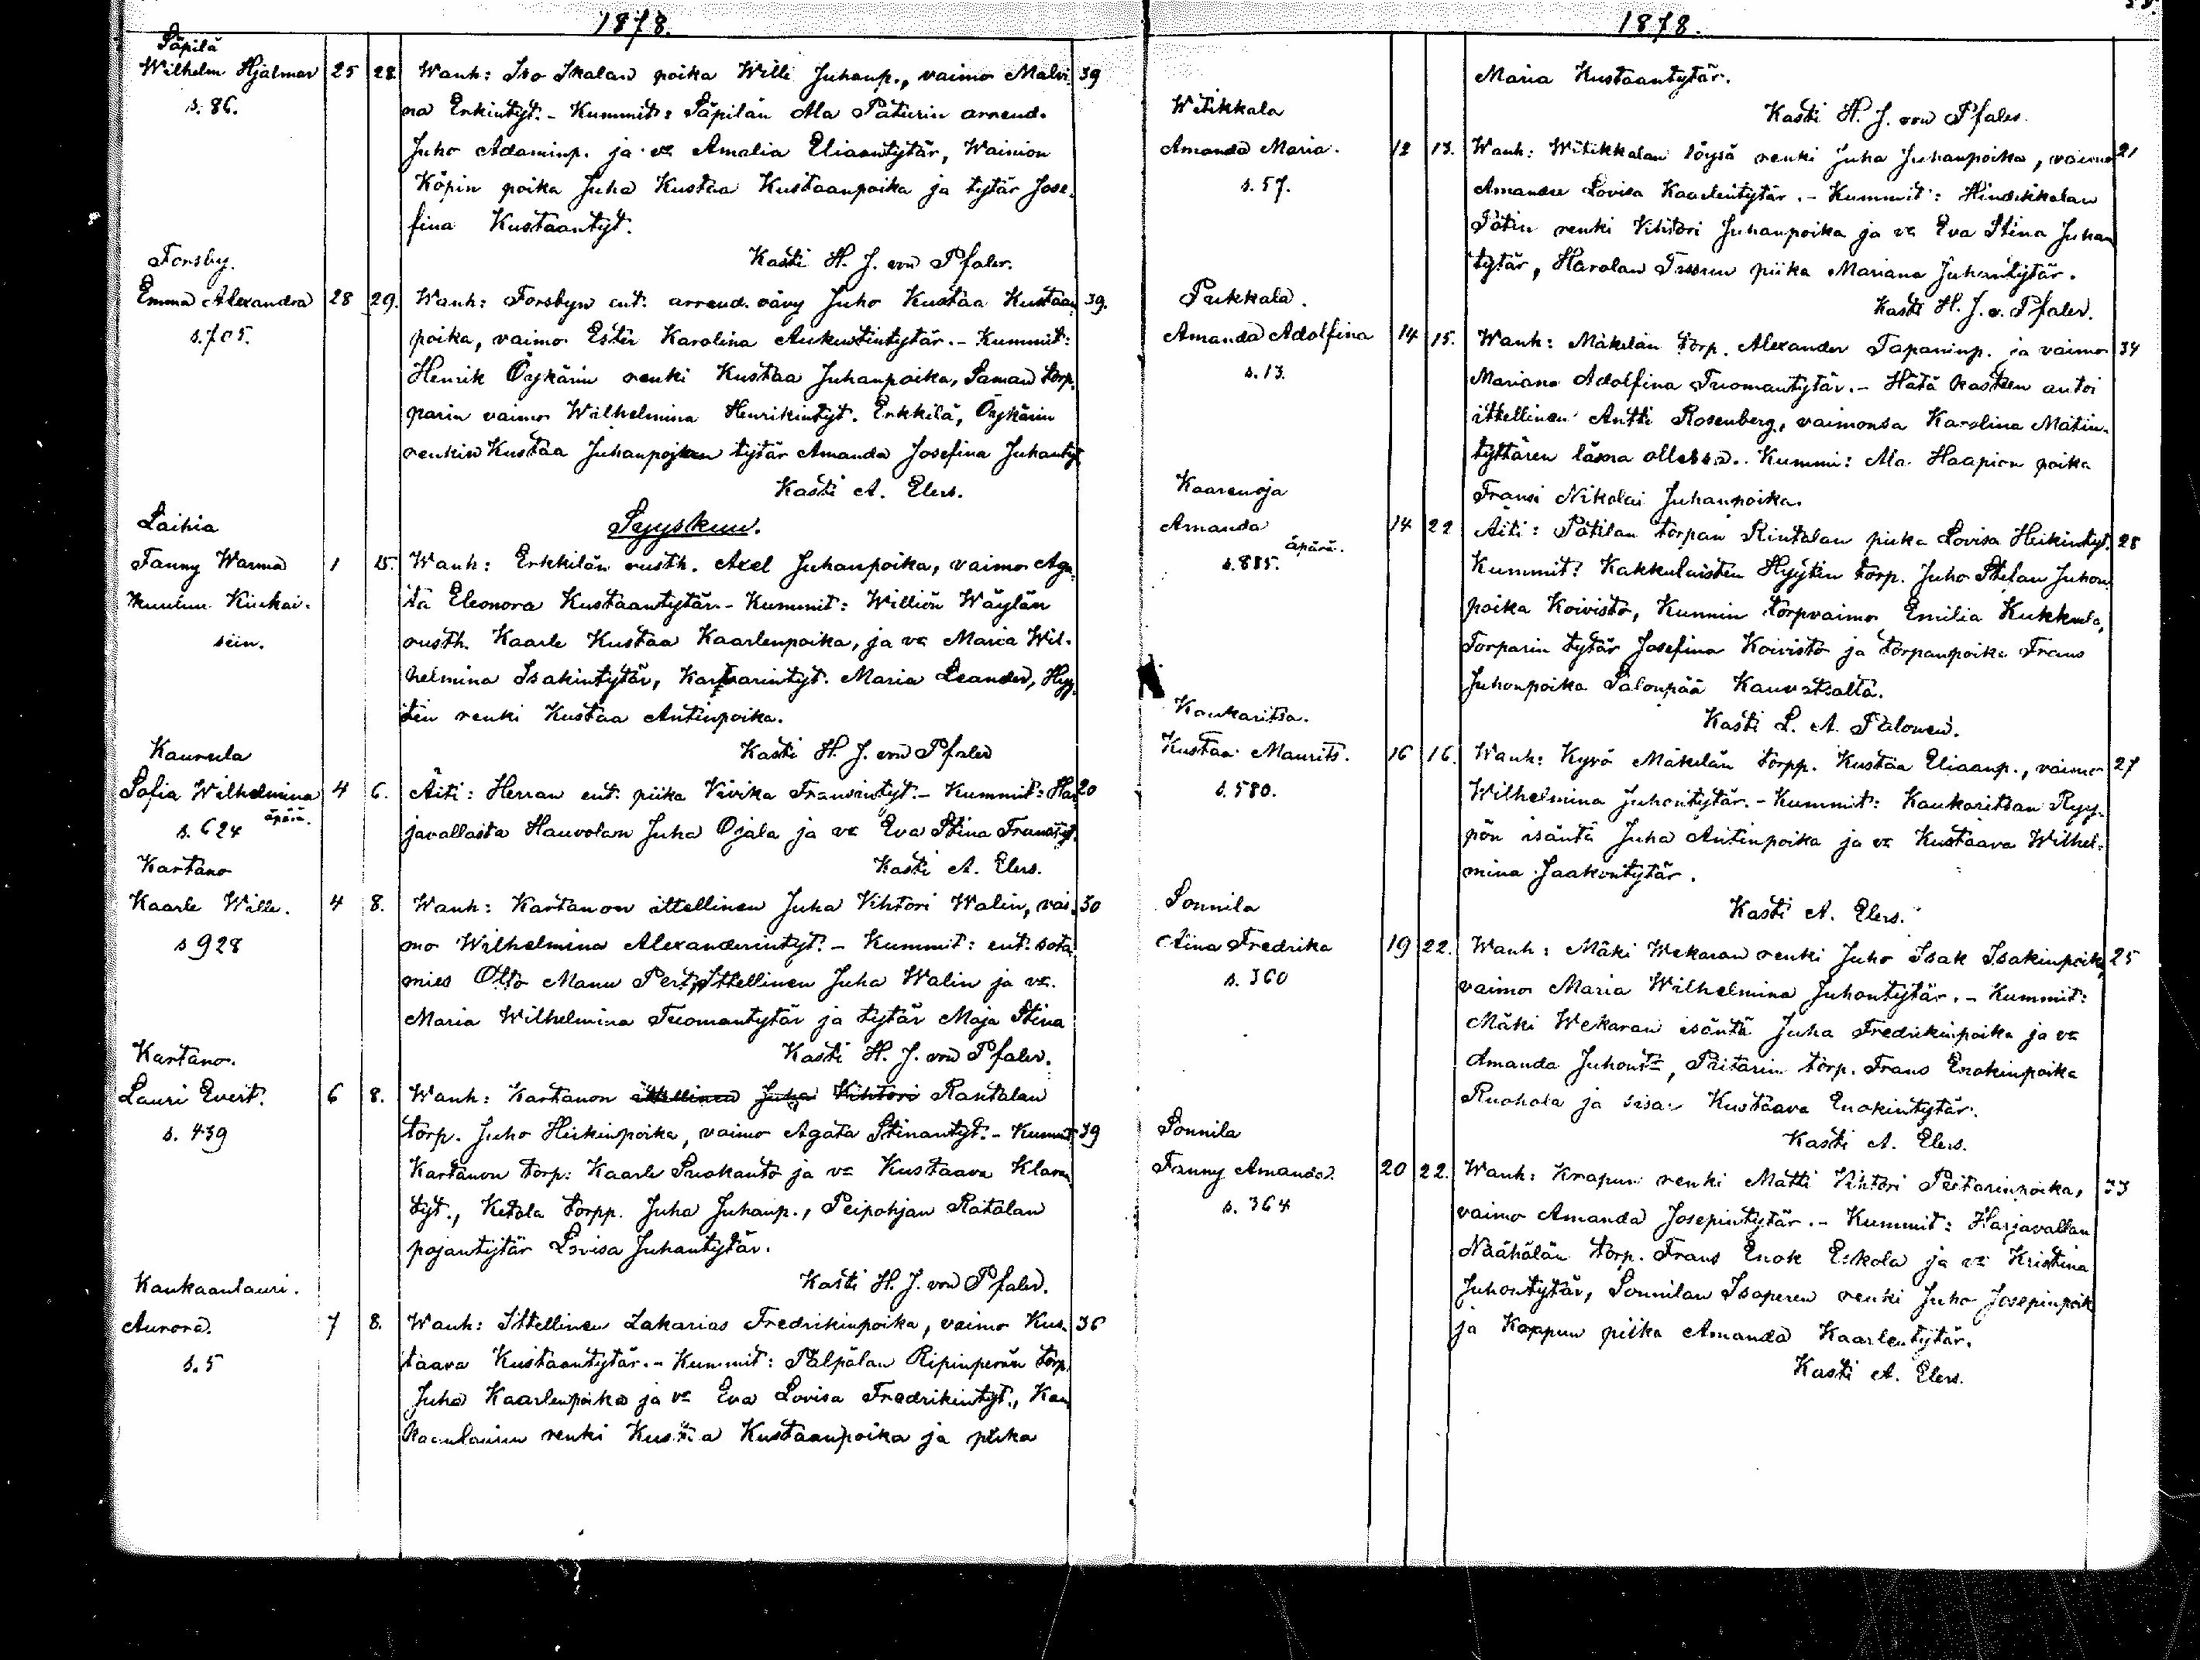 1878.
Säpilä
Wilhelm Hjalmar 25 28 Wanh: Iso Ikalan poika Willi Juhanp., vaimo Malvi- 39
s. 86. na Erkintyt. - Kummit: Säpilän Ala Paturin arrend.
Juho Adaminp. ja va Amalia Eliaantytär, Wainion
Köpin poika Juha Kustaa Kustaanpoika ja tytär Jose-
fina Kustaantyt.
Forsby. Kasti H. J. von Pfaler.
Emma Alexandra 28 29. Wanh: Forsbyn ent. arrend. vävy Juho Kustaa Kustaan 39.
s. 705. poika, vaimo Ester Karolina Aukustintytär. - Kummit:
Henrik Öykärin renki Kustaa Juhanpoika, Saman torp.
parin vaimo Wilhelmina Henrikintyt. Erkkilä, Öykärin
renkin Kustaa Juhanpojan tytär Amanda Josefina Juhantyt
Kasti A. Elers.
Laihia Syyskuu.
Fanny Warma 1 15. Wanh: Erkkilän rusth. Axel Juhanpoika, vaimo Aga-
kuuluu Kiukai- ta Eleonora Kustaantytär - Kummit: Williön Wäylän
siin. rusth. Kaarle Kustaa Kaarlenpoika, ja va Maria Wil-
helmina Isakintytär, Karvarintyt. Maria Leander, Hyy-
tin renki Kustaa Antinpoika.
Kaurula Kasti H. J. von Pfaler
Sofia Wilhelmina 4 6. Äiti: Herran ent. piika Vivika Fransintyt. - Kummit: Har 20
äpärä.
s. 624 javallasta Hauvolan Juha Ojala ja va Eva Stina Fransityt.
Kartano Kasti A. Elers.
Kaarle Wille. 4 8. Wanh: Kartanon ittellinen Juha Vihtori Walin, vai- 30
s 928 mo Wilhelmina Alexanderintyt. - Kummit: ent. sota
mies Otto Manu Pert, Ittellinen Juha Walin ja va.
Maria Wilhelmina Tuomantytär ja tytär Maja Stina
Kartano. Kasti H. J. von Pfaler.
Lauri Evert. 6 8. Wanh: Kartanon ittellinen Juha Vihtori Rantalan
s. 439 torp. Juho Heikinpoika, vaimo Agata Stinantyt. - Kummit 39
Kartanon torp: Kaarle Suokanto ja va Kustaava Klaran
tyt., Ketola torpp. Juha Juhanp., Peipohjan Ratalan
pojantytär Lovisa Juhantytär.
Kaukaanlauri. Kasti H. J. von Pfaler.
Aurora. 7 8. Wanh: Ittellinen Zakarias Fredrikinpoika, vaimo Kus- 36
s. 5 taava Kustaantytär. - Kummit: Pälpälän Ripinperän torp.
Juha Kaarlenpoika ja va Eva Lovisa Fredrikintyt., Kau
kaanlaurin renki Kustaa Kustaanpoika ja piika
1878.
Maria Kustaantytär.
Witikkala Kasti H. J. von Pfaler.
Amanda Maria. 12 13. Wanh: Witikkalan löysä renki Juha Juhanpoika, vaimo 21
s. 57. Amanda Lovisa Kaarlentytär. - Kummit: Hindikkalan
Pätin renki Vihtori Juhanpoika ja va Eva Stina Juhan
tytär, Harolan piika Mariana Juhantytär.
Pukkala. Kasti H. J. v. Pfaler.
Amanda Adolfina 14 15. Wanh: Mäkelän torp. Alexander Tapaninp. ja vaimo 34
s. 13. Mariana Adolfina Tuomantytär. - Hätä kasteen antoi
ittellinen Antti Rosenberg, vaimonsa Karolina Matin-
tyttären läsna ollessa. Kummi: Ala Haapion poika
Kaarenoja Fransi Nikolai Juhanpoika.
Amanda 14 22 Äiti: Pätilän torpan Rintalan piika Lovisa Heikintyt. 28
äpärä.
s. 885. Kummit: Kakkulaisten Hyytin torp. Juho Stefan Juhon
poika Koivisto, Kunnin torpvaimo Emilia Kukkula,
Torparin tytär Josefina Koivisto ja torpanpoika Frans
Juhonpoika Salonpää Kauvatsalta.
Kaukaritsa. Kasti L. A. Palonen.
Kustaa Maurits. 16 16. Wanh: Kyrö Mäkelän torpp. Kustaa Eliaanp., vaimo 27
s. 580. Wilhelmina Juhontytär. - Kummit: Kaukaritsan Ryy-
pön isäntä Juha Antinpoika ja va Kustaava Wilhel-
mina Jaakontytär.
Sonnila Kasti A. Elers.
Aina Fredrika 19 22. Wanh: Mäki Wekaran renki Juho Isak Isakinpoika 25
s. 360 vaimo Maria Wilhelmina Juhontytär. - Kummit:
Mäki Wekaran isäntä Juha Fredrikinpoika ja va
Amanda Juhont., Pritarin torp. Frans Enokinpoika
Ruohola ja sisar Kustaava Enokintytär.
Sonnila Kasti A. Elers.
Fanny Amanda. 20 22. Wanh: Krapun renki Matti Vihtori Peitarinpoika, 33
s. 364 vaimo Amanda Josepintytär. - Kummit: Harjavallan
Näähälän torp. Frans Enok Eskola ja va Kristina
Juhontytär, Sonnilan Isoperen renki Juho Josepinpoik
ja Krappun piika Amanda Kaarlentytär.
Kasti A. Elers.